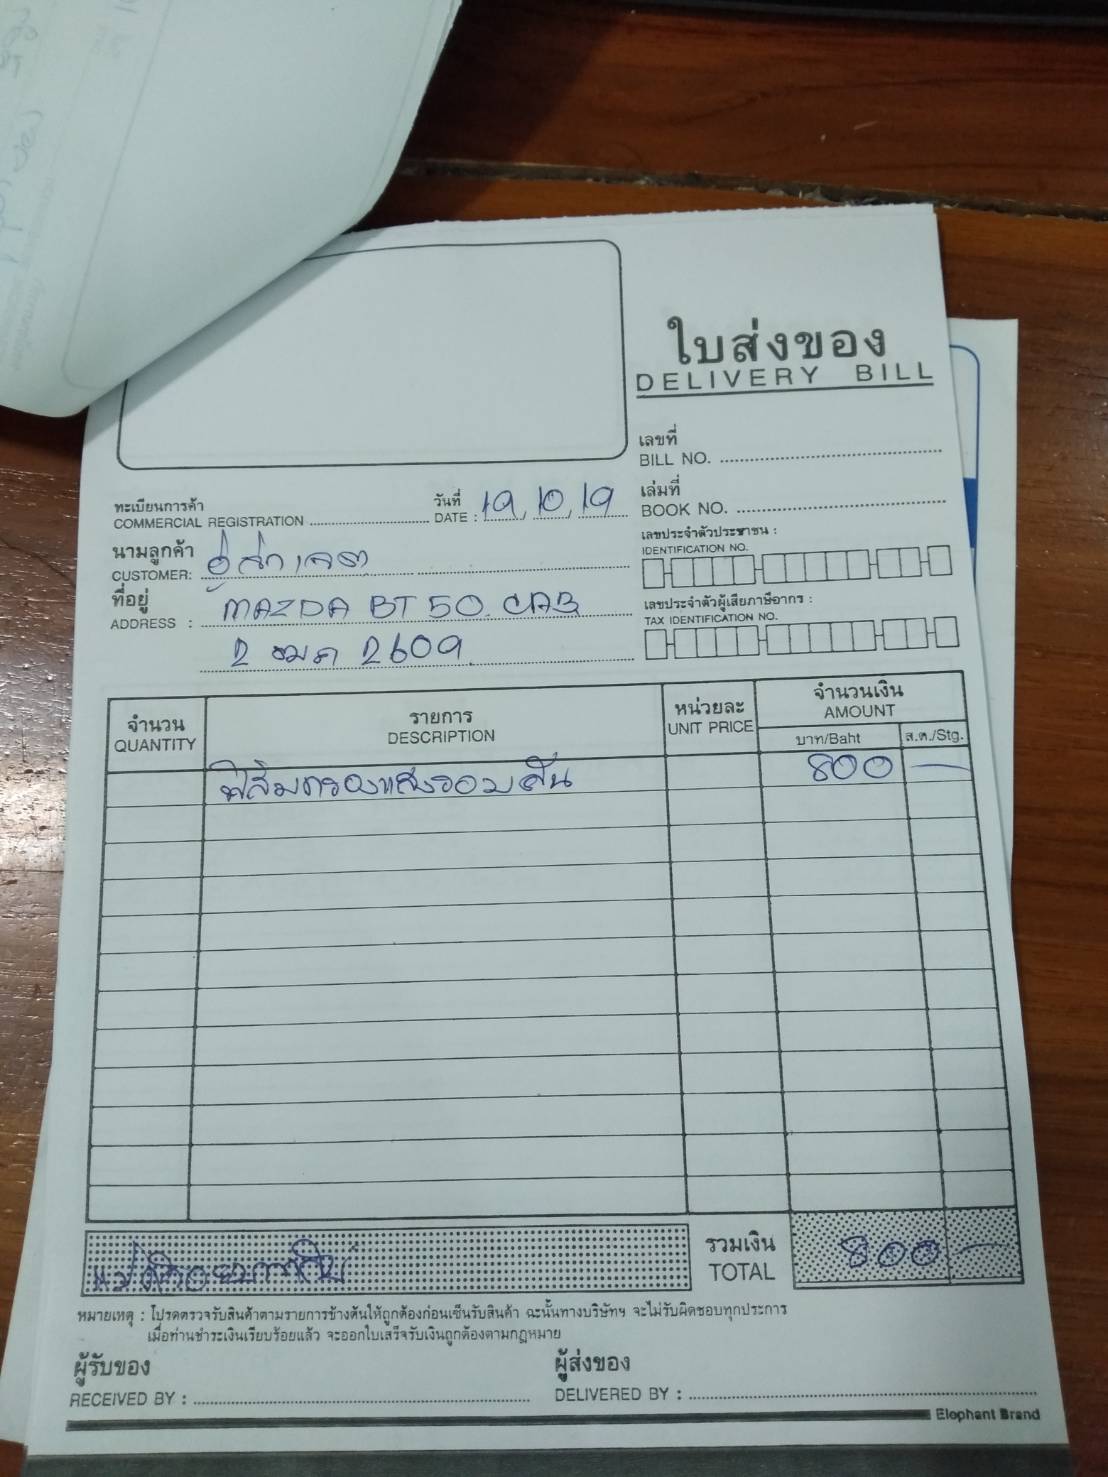 ใบส่งของ
DELIVERY BILL
เลขที่
BILL NO.
ทะเบียนการค้า
COMMERCIAL REGISTRATION
วันที่
DATE : 19, 10, 19
เล่มที่
BOOK NO.
นามลูกค้า
CUSTOMER: อู่
เลขประจำตัวประชาชน :
IDENTIFICATION NO.
ที่อยู่
ADDRESS : MAZDA BT 50. CAB
เลขประจำตัวผู้เสียภาษีอากร :
TAX IDENTIFICATION NO.
2 ฒฒ 2609
จำนวน
QUANTITY
รายการ
DESCRIPTION
หน่วยละ
UNIT PRICE
จำนวนเงิน
AMOUNT
บาท/Baht
ส.ต./Stg.
ฟิล์มกรองแสงรอบคัน 800 —
รวมเงิน
TOTAL
800 —
หมายเหตุ : โปรดตรวจรับสินค้าตามรายการข้างต้นให้ถูกต้องก่อนเซ็นรับสินค้า ฉะนั้นทางบริษัทฯ จะไม่รับผิดชอบทุกประการ
เมื่อท่านชำระเงินเรียบร้อยแล้ว จะออกใบเสร็จรับเงินถูกต้องตามกฎหมาย
ผู้รับของ
RECEIVED BY :
ผู้ส่งของ
DELIVERED BY :
Elephant Brand